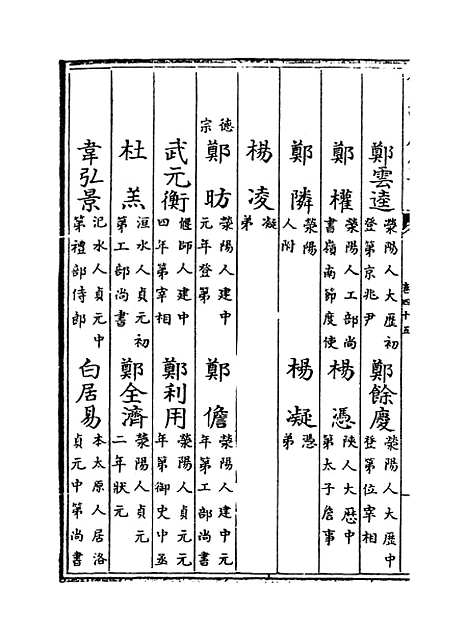 鄭雲逵 滎陽人大歴初登第京兆尹 鄭餘慶 滎陽人大歴中登第位宰相
鄭權 滎陽人工部尚書嶺南節度使 楊憑 陜人大歴中第太子詹事
鄭隣 滎陽人附 楊凝 憑弟
楊凌 凝弟
德宗 鄭昉 滎陽人建中元年登第 鄭儋 滎陽人建中元年第工部尚書
武元衡 偃師人建中四年第宰相 鄭利用 滎陽人貞元元年第御史中丞
杜羔 洹水人貞元初第工部尚書 鄭全濟 滎陽人貞元二年狀元
韋弘景 汜水人貞元中第禮部侍郎 白居易 本太原人居洛貞元中第尚書
卷四十五